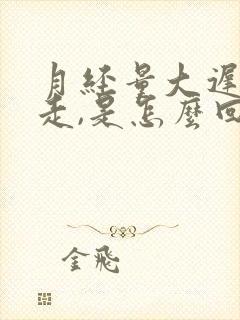 月經量大遲
走,是怎麼回
金飛